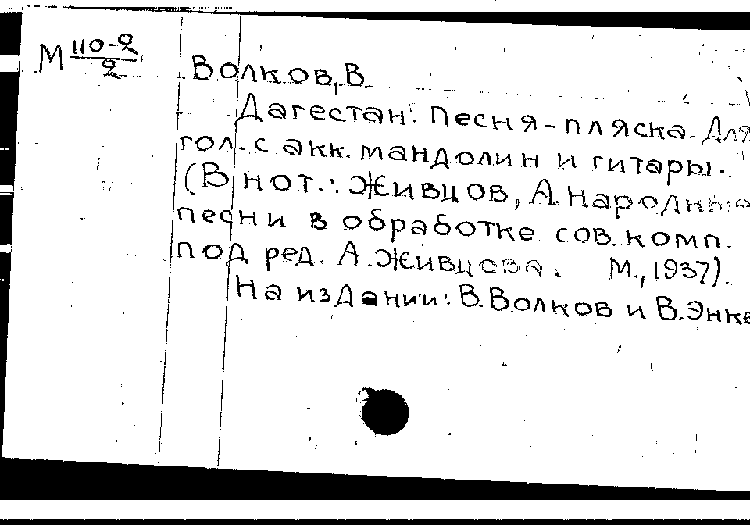 М 110-2/2
Волков, В.
Дагестан. Песня-пляска. Для
гол. с акк. мандолин и гитары.
(В нот.: Живцов, А. Народные
песни в обработке сов. комп.
под ред. А. Живцова. М., 1937).
На издании: В. Волков и В. Энке